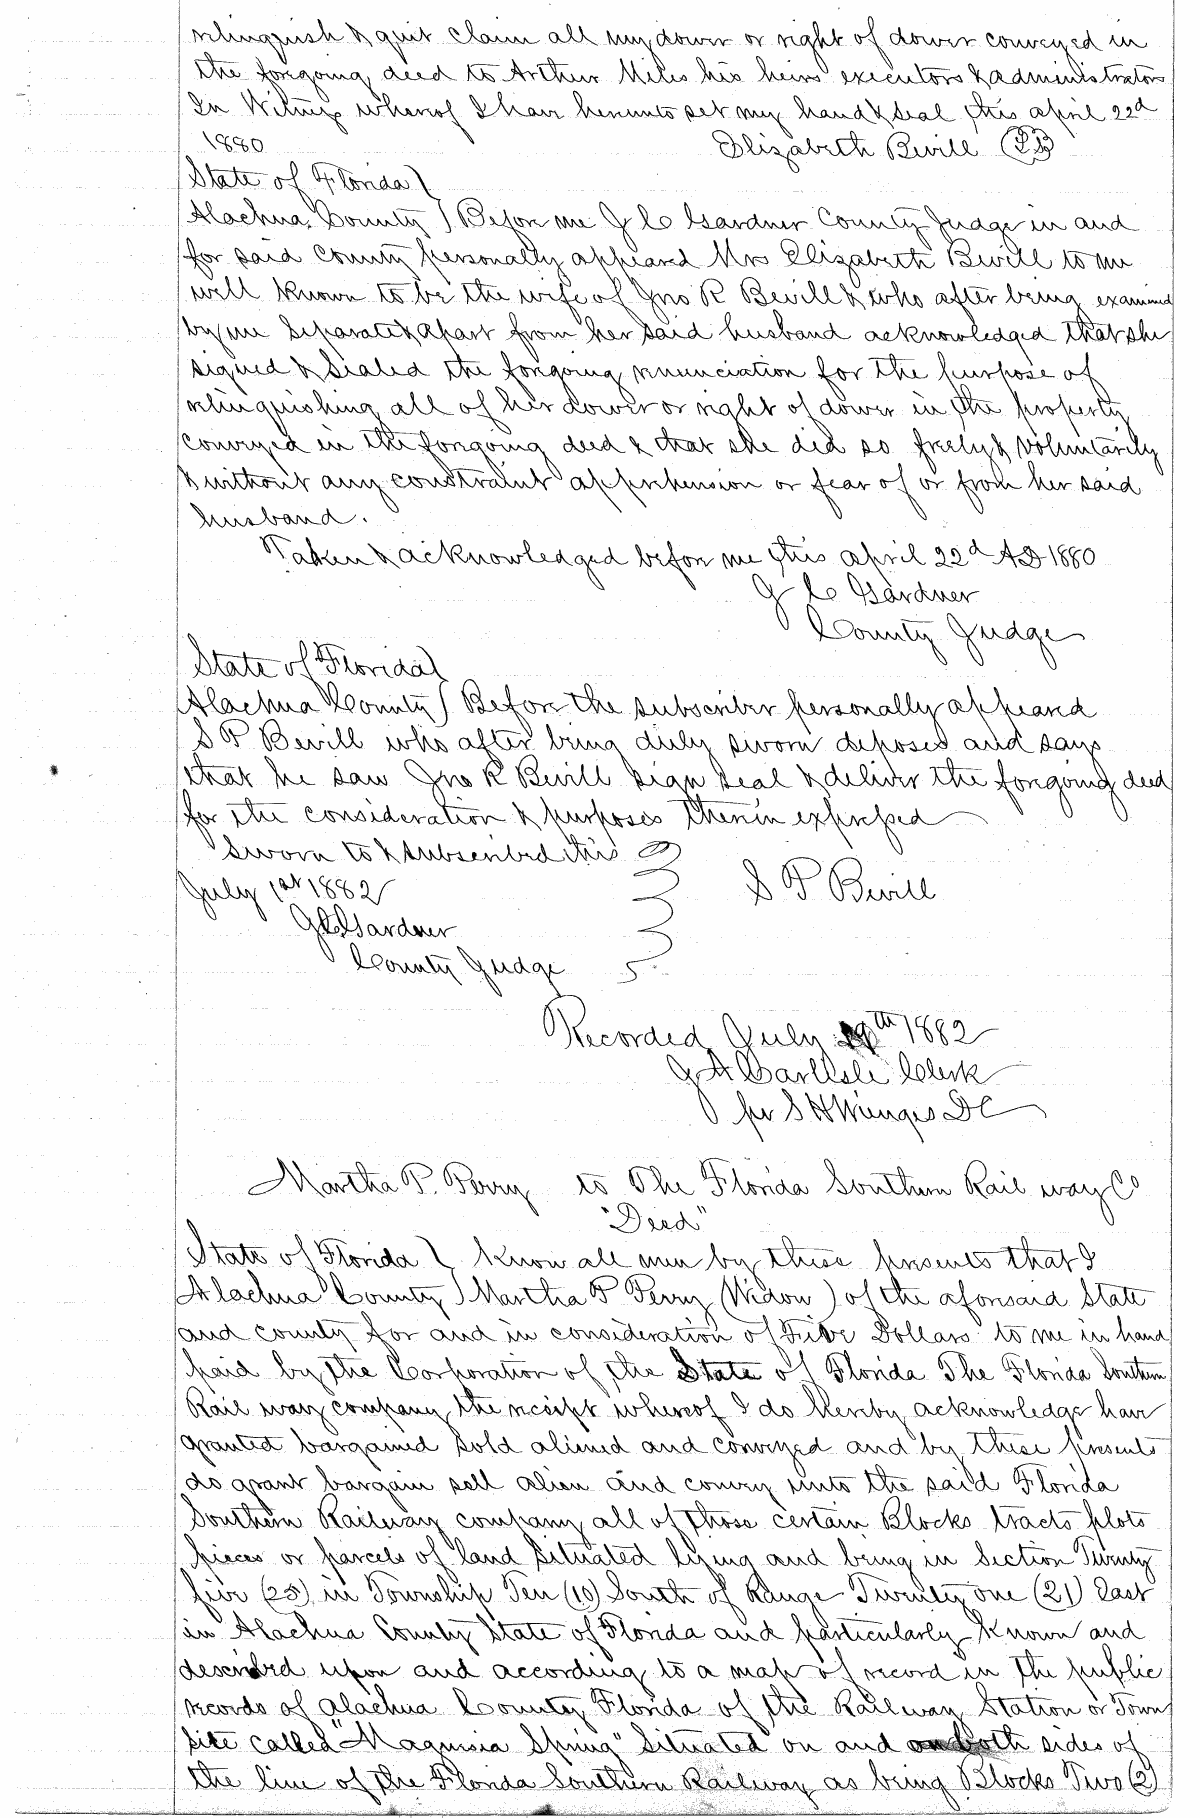 relinquish & quit claim all my dower or right of dower conveyed in
the forgoing deed to Arthur Miles his heirs executors & administrators
In Witness whereof I have hereunto set my hand & seal this april 22d
1880 Elizabeth Bevill
State of Florida }
Alachua County } Before me G C Gardner County Judge in and
for said County personally appeared Mrs Elizabeth Bevill to me
well known to be the wife of Jno R Bevill & who after being examined
by me Separate & apart from her said husband acknowledged that she
signed & Sealed the forgoing renunciation for the purpose of
relinquishing all of her dower or right of dower in the property
conveyed in the forgoing deed & that she did so freely & Voluntarily
& without any constraint apprehension or fear of or from her said
husband.
Taken & acknowledged before me this april 22d AD 1880
G C Gardner
County Judge
State of Florida }
Alachua County } Before the subscriber personally appeared
S P Bevill who after being duly sworn deposes and says
that he saw Jno R Bevill sign seal & deliver the forgoing deed
for the consideration & purposes therein expressed
Sworn to & subscribed this
July 1st 1882 S P Bevill
G C Gardner
County Judge
Recorded July th 1882
J A Carlisle Clerk
per S H Wienges DC
Martha P. Perry to The Florida Southern Rail way Co
"Deed"
State of Florida } Know all men by these presents that I
Alachua County } Martha P Perry (Widow) of the aforesaid State
and county for and in consideration of Five Dollars to me in hand
paid by the Corporation of the State of Florida The Florida Southern
Rail way company the receipt whereof I do hereby acknowledge have
granted bargained sold aliened and conveyed and by these presents
do grant bargain sell alien and convey unto the said Florida
Southern Railway company all of those certain Blocks tracts plots
pieces or parcels of land situated lying and being in Section Twenty
five (25) in Township Ten (10) South of Range Twenty one (21) East
in Alachua County State of Florida and particularly known and
described upon and according to a map of record in the public
records of Alachua County Florida of the Railway Station or Town
site called "Magnesia Spring" situated on and on both sides of
the line of the Florida Southern Railway as being Blocks Two (2)